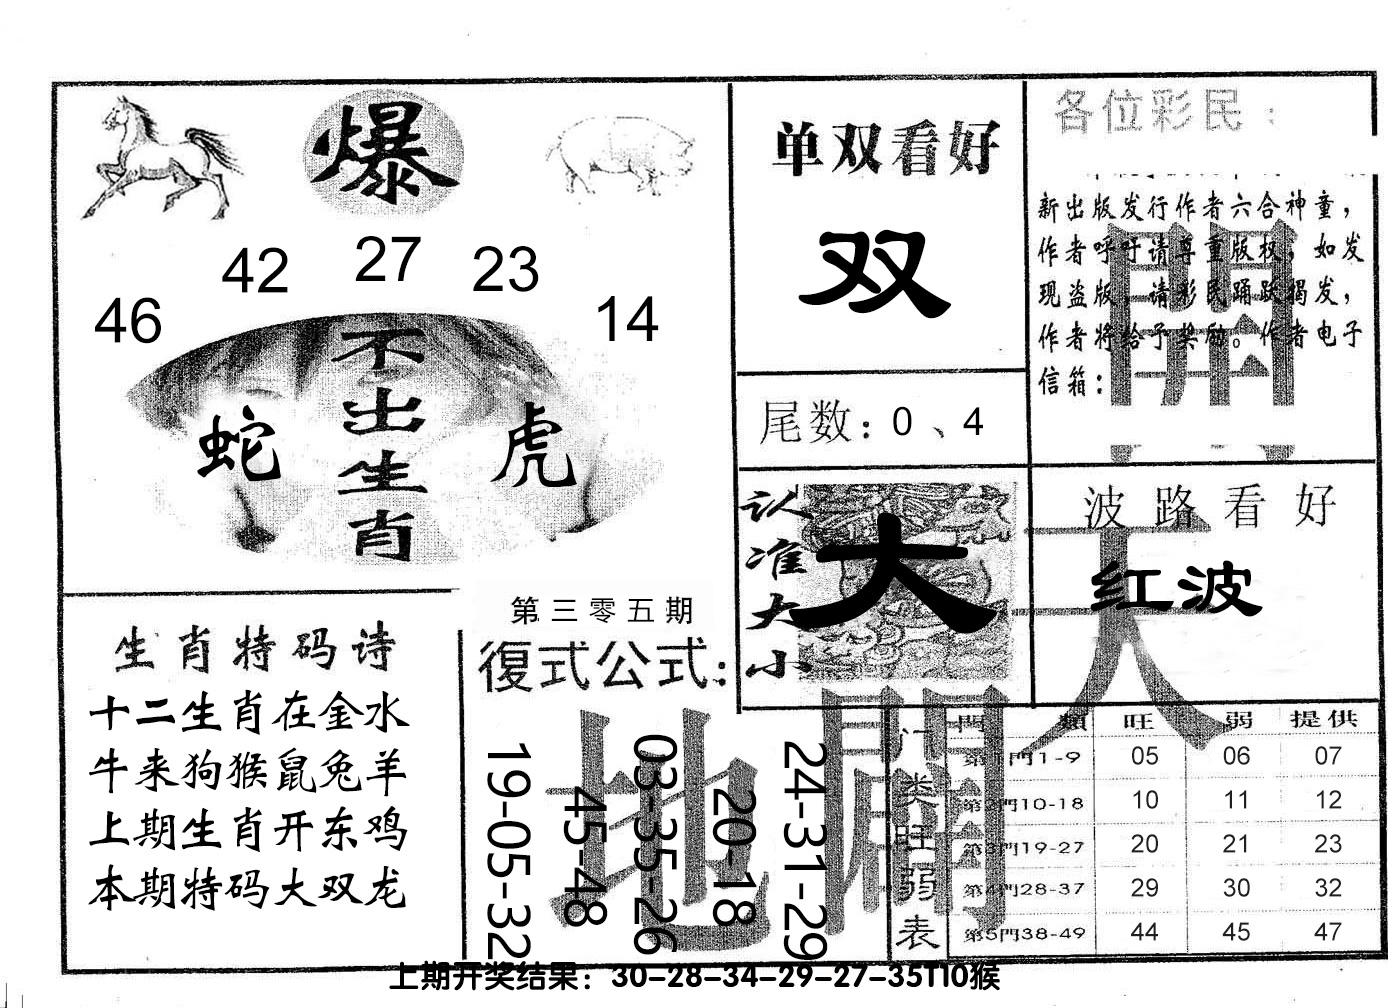 爆
46
42
27
23
14
不出生肖
蛇
虎
单双看好
双
尾数：0、4
各位彩民：
新出版发行作者六合神童，
作者呼吁请尊重版权，如发
现盗版，请彩民踊跃揭发，
作者将给予奖励。作者电子
信箱：
開
认准大小
大
波路看好
红波
天
生肖特码诗
十二生肖在金水
牛来狗猴鼠兔羊
上期生肖开东鸡
本期特码大双龙
第三零五期
復式公式：
19-05-32
45-48
03-35-26
20-18
24-31-29
地
門类旺弱表
門類 旺 弱 提供
第1門1-9 05 06 07
第2門10-18 10 11 12
第3門19-27 20 21 23
第4門28-37 29 30 32
第5門38-49 44 45 47
上期开奖结果：30-28-34-29-27-35T10猴